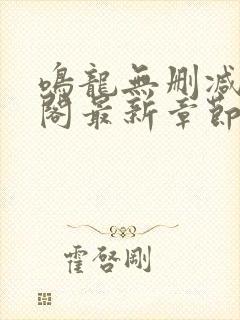 鳴龍無刪減
閣最新章節
霍啓剛